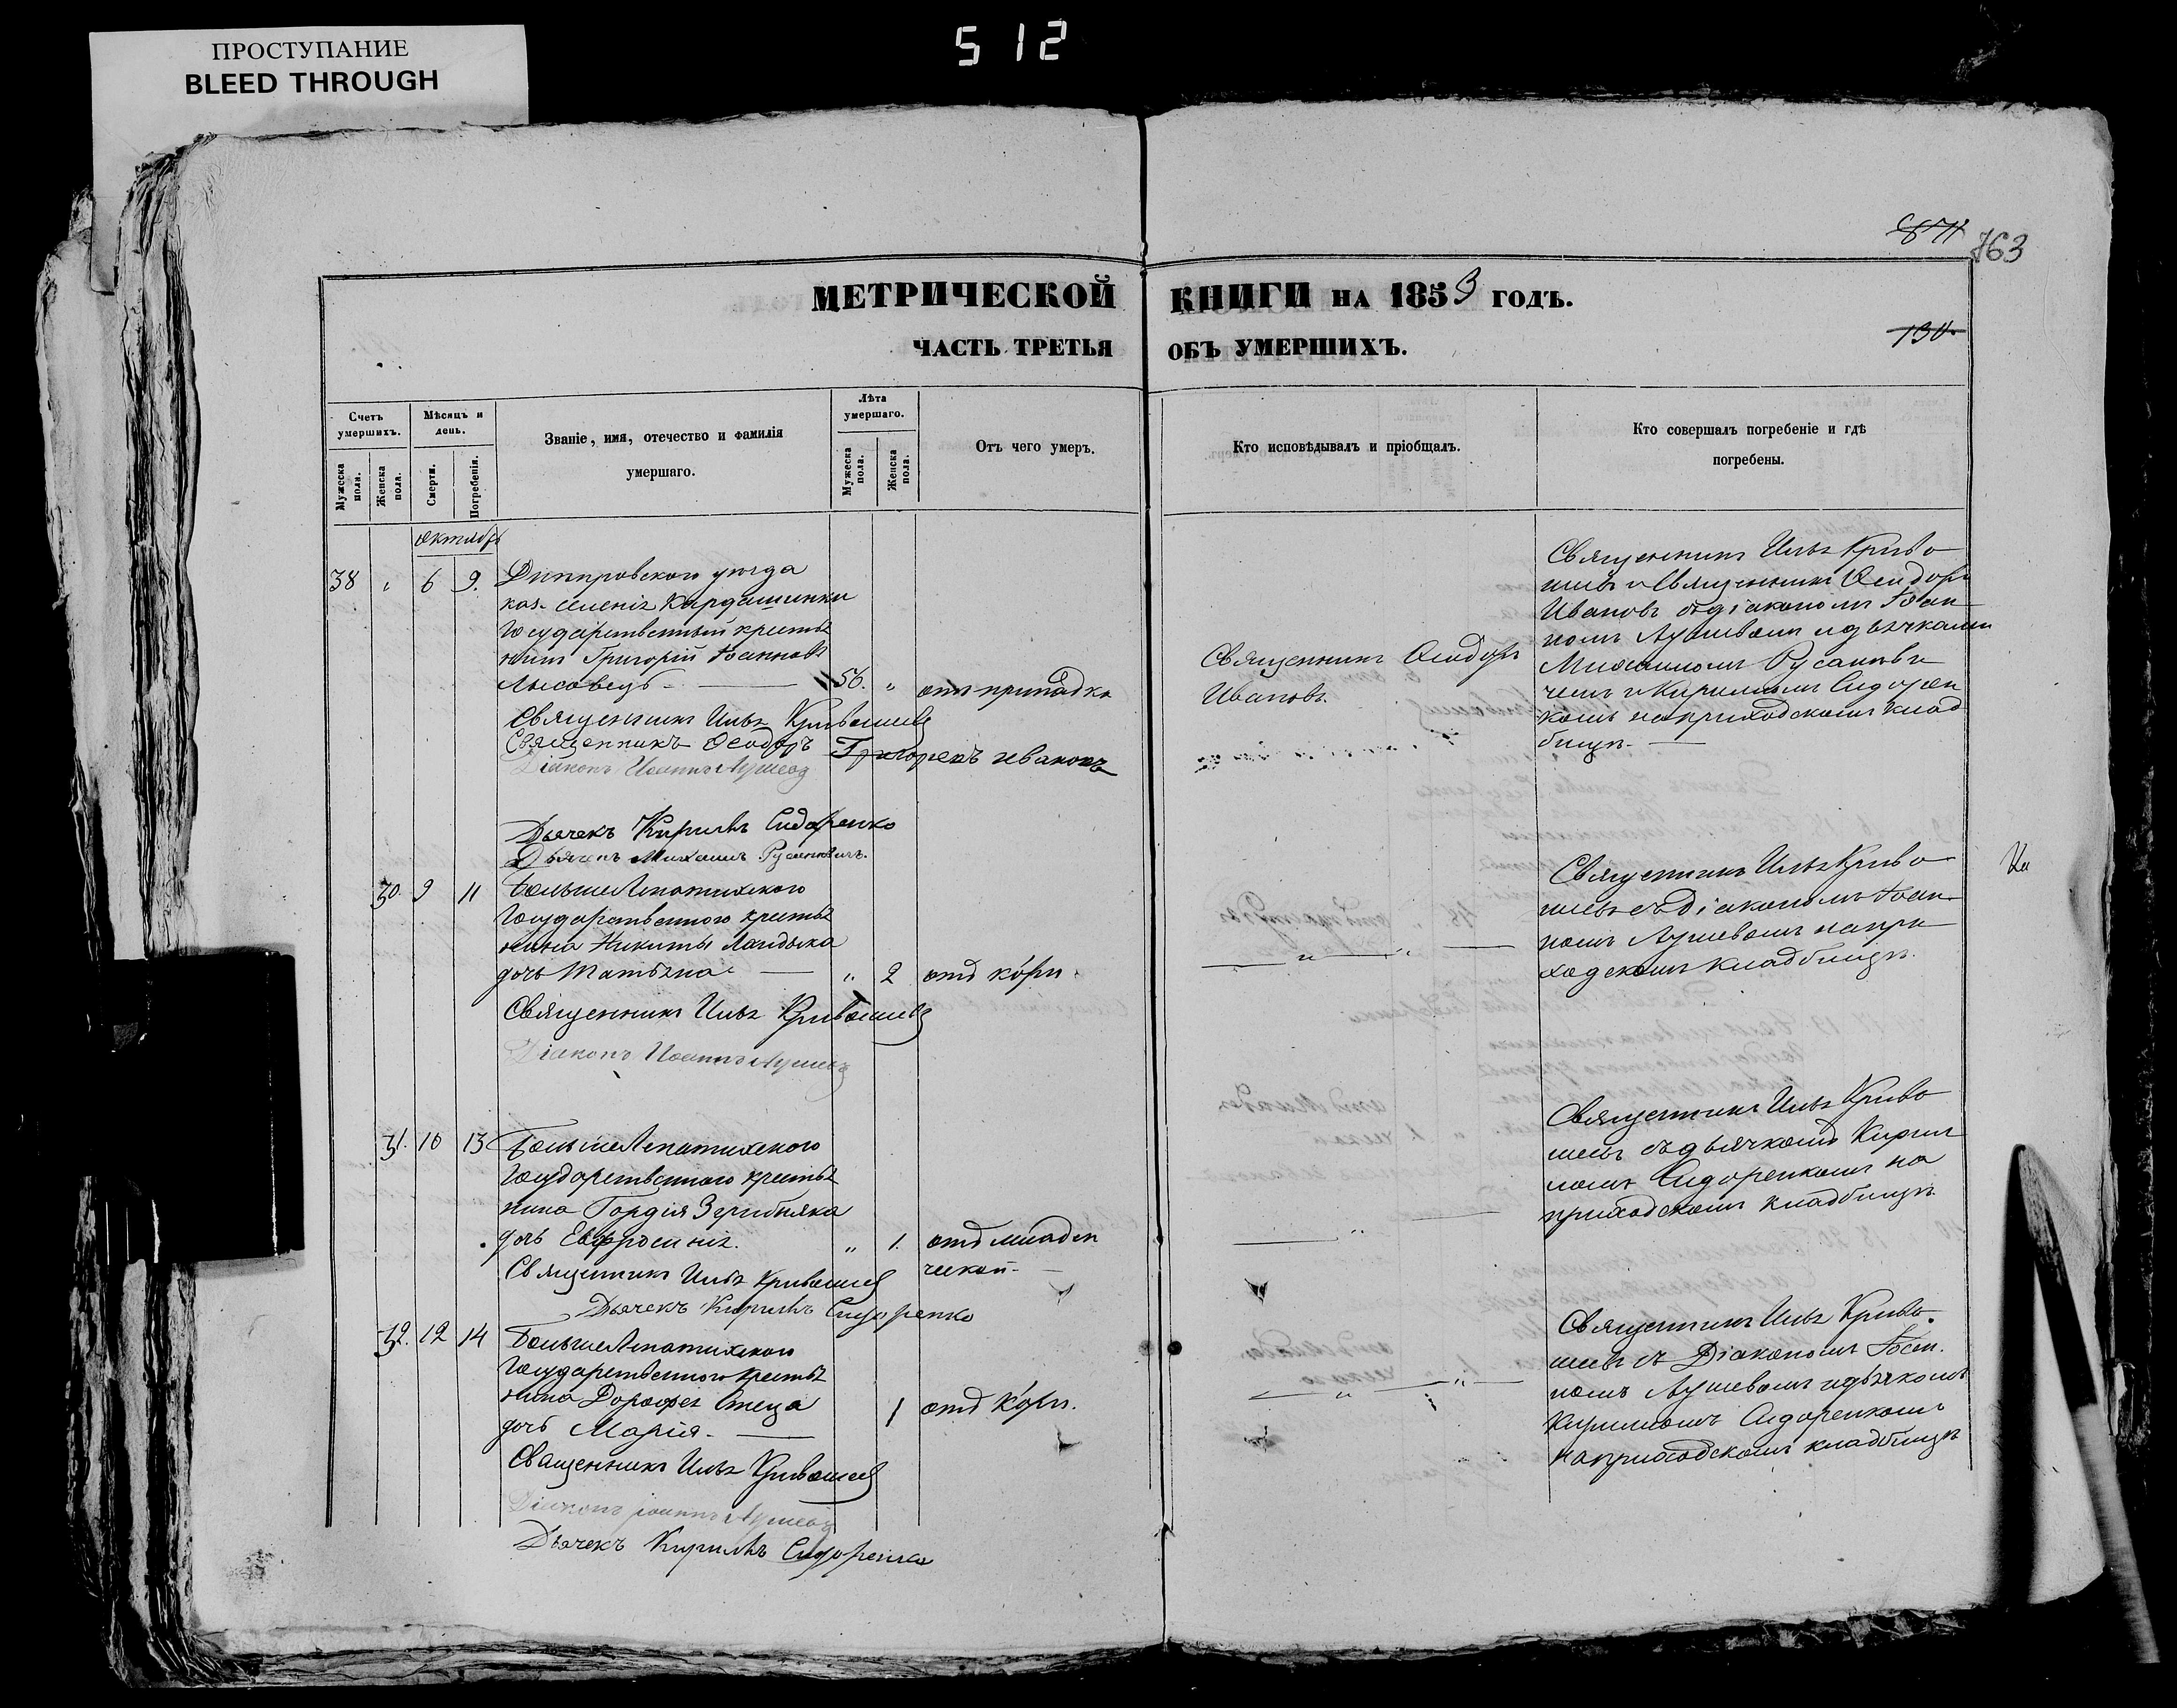 ПРОСТУПАНИЕ
BLEED THROUGH
512
763
МЕТРИЧЕСКОЙ КНИГИ НА 1853 ГОДЪ.
ЧАСТЬ ТРЕТЬЯ ОБЪ УМЕРШИХЪ.
Счетъ умершихъ.
Мужеска пола.
Женска пола.
Мѣсяцъ и день.
Смерти.
Погребенія.
Званіе, имя, отечество и фамилія
умершаго.
Лѣта умершаго.
Мужеска пола.
Женска пола.
Отъ чего умеръ.
Кто исповѣдывалъ и пріобщалъ.
Кто совершалъ погребеніе и гдѣ
погребены.
октябрь
38 " 6 9. Днепровского уезда
каз. селенія Кардашинки
Государственный крестья
нинъ Григорій Іоанновъ
Лысовецъ 56. " отъ припадка
Священникъ Илья Кривошеев
Священникъ Ѳеодоръ Григорекъ Ивановъ
Діаконъ Иоаннъ Лушевъ
Дьячекъ Кирилъ Сидоренко
Дьячекъ Михаилъ Русановичъ.
Священникъ Ѳеодоръ
Ивановъ.
Священникъ Илья Криво
шеевъ и Священникъ Ѳеодоръ
Ивановъ съ діакономъ Іоан
номъ Лушевымъ и дьячками
Михаиломъ Русанови
чемъ и Кириломъ Сидорен
комъ на приходскомъ клад
бищѣ.
30. 9 11 БольшеЛепатихского
Государственного крестья
нина Никиты Ландыка
дочь Татьяна " 2 отъ кори
Священникъ Илья Кривошеев
Діаконъ Иоаннъ Лушевъ
Священникъ Илья Криво
шеевъ съ діакономъ Іоан
номъ Лушевымъ на при
ходскомъ кладбищѣ.
31. 10 13 БольшеЛепатихского
Государственного крестья
нина Гордія
дочь Евфросинія. " 1. отъ младен
ческой
Священникъ Илья Кривошеев
Дьячекъ Кирилъ Сидоренко
Священникъ Илья Криво
шеевъ съ дьячкомъ Кирил
ломъ Сидоренкомъ на
приходскомъ кладбищѣ.
32. 12 14 БольшеЛепатихского
Государственного крестья
нина Дорофея Стеца
дочь Марія. 1 отъ кори.
Священникъ Илья Кривошеев
Діаконъ Іоаннъ Лушевъ
Дьячекъ Кирилъ Сидоренко
Священникъ Илья Криво
шеевъ съ Діакономъ Іоан
номъ Лушевымъ и дьячкомъ
Кириломъ Сидоренкомъ
на приходскомъ кладбищѣ